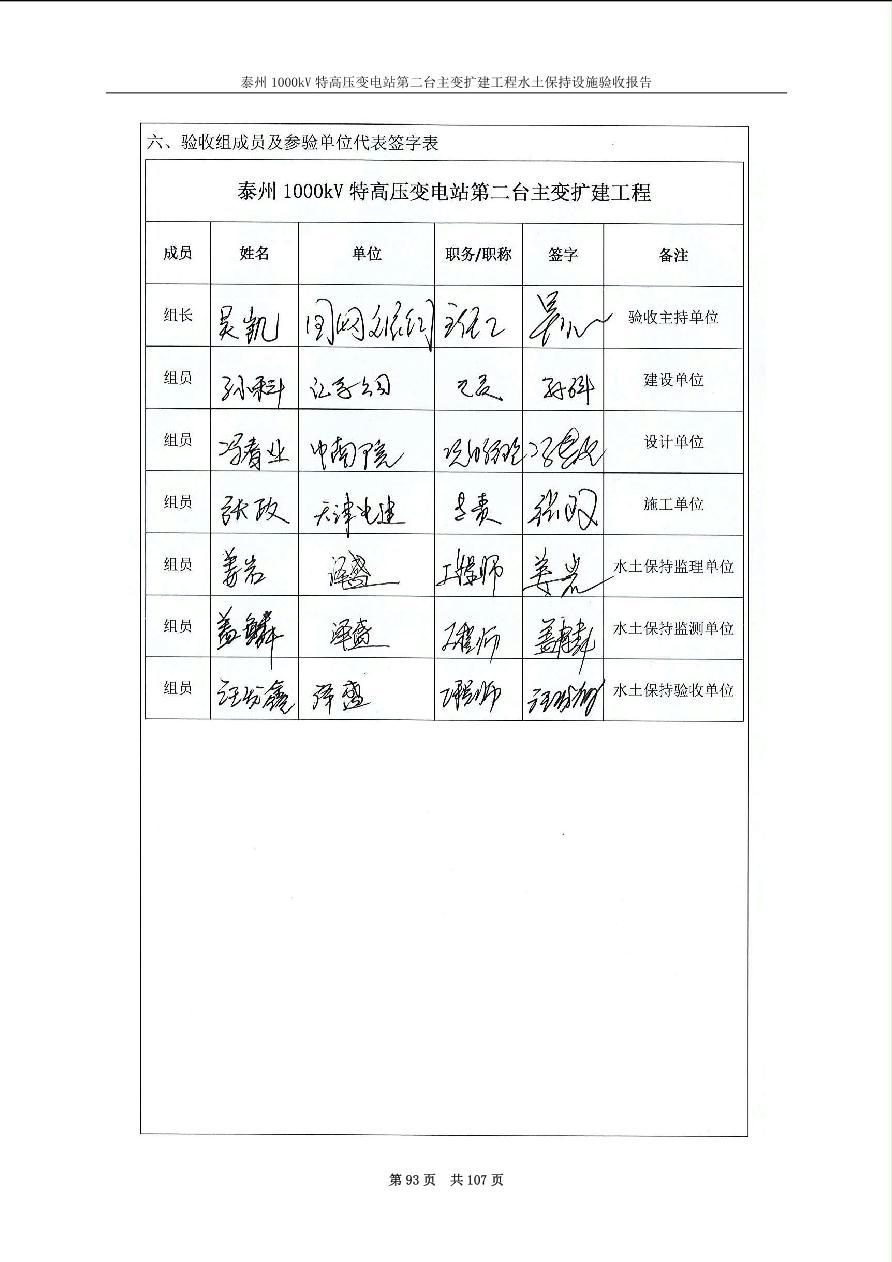 泰州 1000kV 特高压变电站第二台主变扩建工程水土保持设施验收报告
六、验收组成员及参验单位代表签字表
泰州 1000kV 特高压变电站第二台主变扩建工程
成员 姓名 单位 职务/职称 签字 备注
组长 吴凯 国网 验收主持单位
组员 孙科 公司 建设单位
组员 冯春业 中南院 设计单位
组员 张政 天津电建 施工单位
组员 姜岩 泽盛 工程师 姜岩 水土保持监理单位
组员 盖 泽盛 工程师 盖 水土保持监测单位
组员 汪 泽盛 工程师 汪 水土保持验收单位
第 93 页 共 107 页